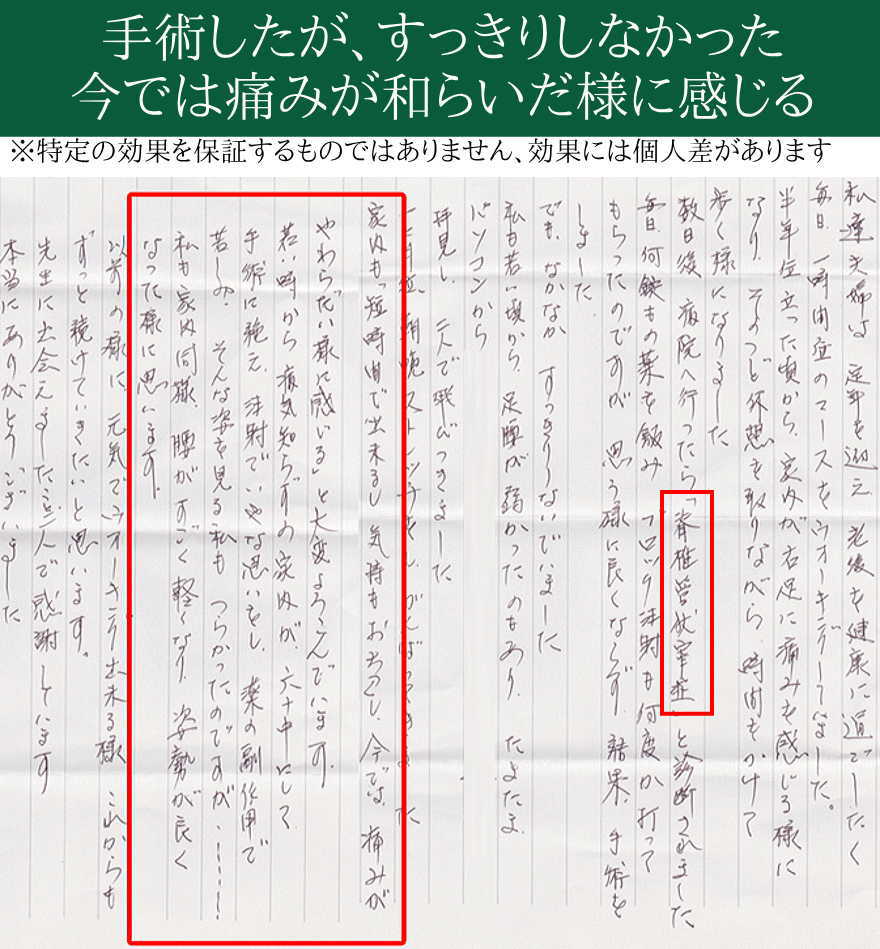 手術したが、すっきりしなかった
今では痛みが和らいだ様に感じる
※特定の効果を保証するものではありません、効果には個人差があります
私達夫婦は定年を迎え老後を健康に過ごしたく
毎日一時間位のコースをウォーキングしていました。
半年位立った頃から、家内が右足に痛みを感じる様に
なり、そのつど休憩を取りながら、時間をかけて
歩く様になりました
数日後、病院へ行ったら「脊椎管狭窄症」と診断されました
毎日、何錠もの薬を飲み ブロック注射も何度か打って
もらったのですが 思う様に良くならず、結果、手術を
しました。
でも、なかなか すっきりしないでいました
私も若い頃から、足腰が弱かったのもあり、たまたま
パソコンから
拝見し、二人で飛びつきました
朝晩ストレッチを
家内も「短時間で出来るし 気持もおちつくし、今では、痛みが
やわらだい様に感じる」と大変よろこんでいます。
若い時から病気知らずの家内が、六十中にして
手術に耐え、注射でいやな思いをし、薬の副作用で
苦しみ、そんな姿を見る私も つらかったのですが、……
私も家内同様、腰がすごく軽くなり、姿勢が良く
なった様に思います。
以前の様に、元気でウォーキング出来る様 これからも
ずっと続けていきたいと思います。
先生に出会えました事二人で感謝しています
本当にありがとうございました